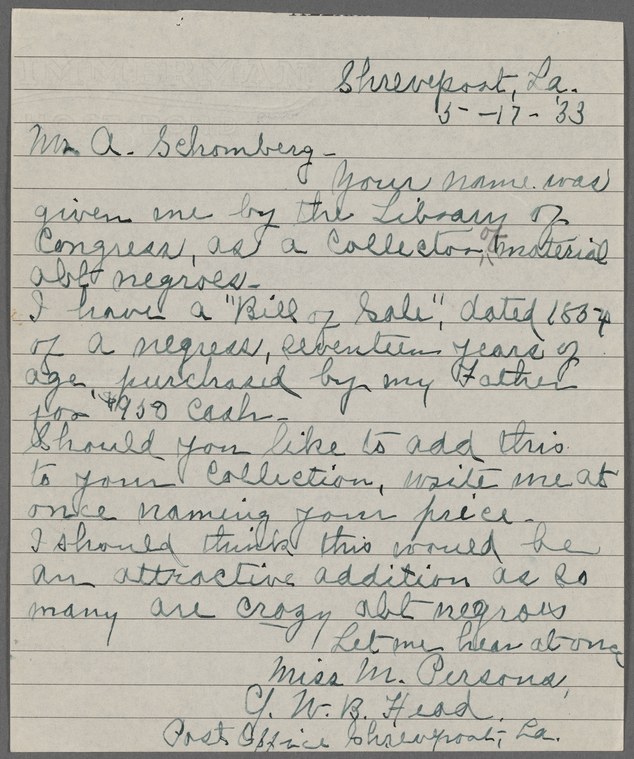 Shreveport, La.
5-17-33
Mr A. Schomberg-
Your name was
given me by the Library of
Congress, as a Collector of material
abt negroes-
I have a "Bill of Sale", dated 1854
of a negress, seventeen years of
age, purchased by my Father
for $950 Cash-
Should you like to add this
to your Collection, write me at
once naming your price-
I should think this would be
an attractive addition as so
many are crazy abt negroes
Let me hear at once
Miss M. Persons,
W. B. Head,
Post Office Shreveport, La.